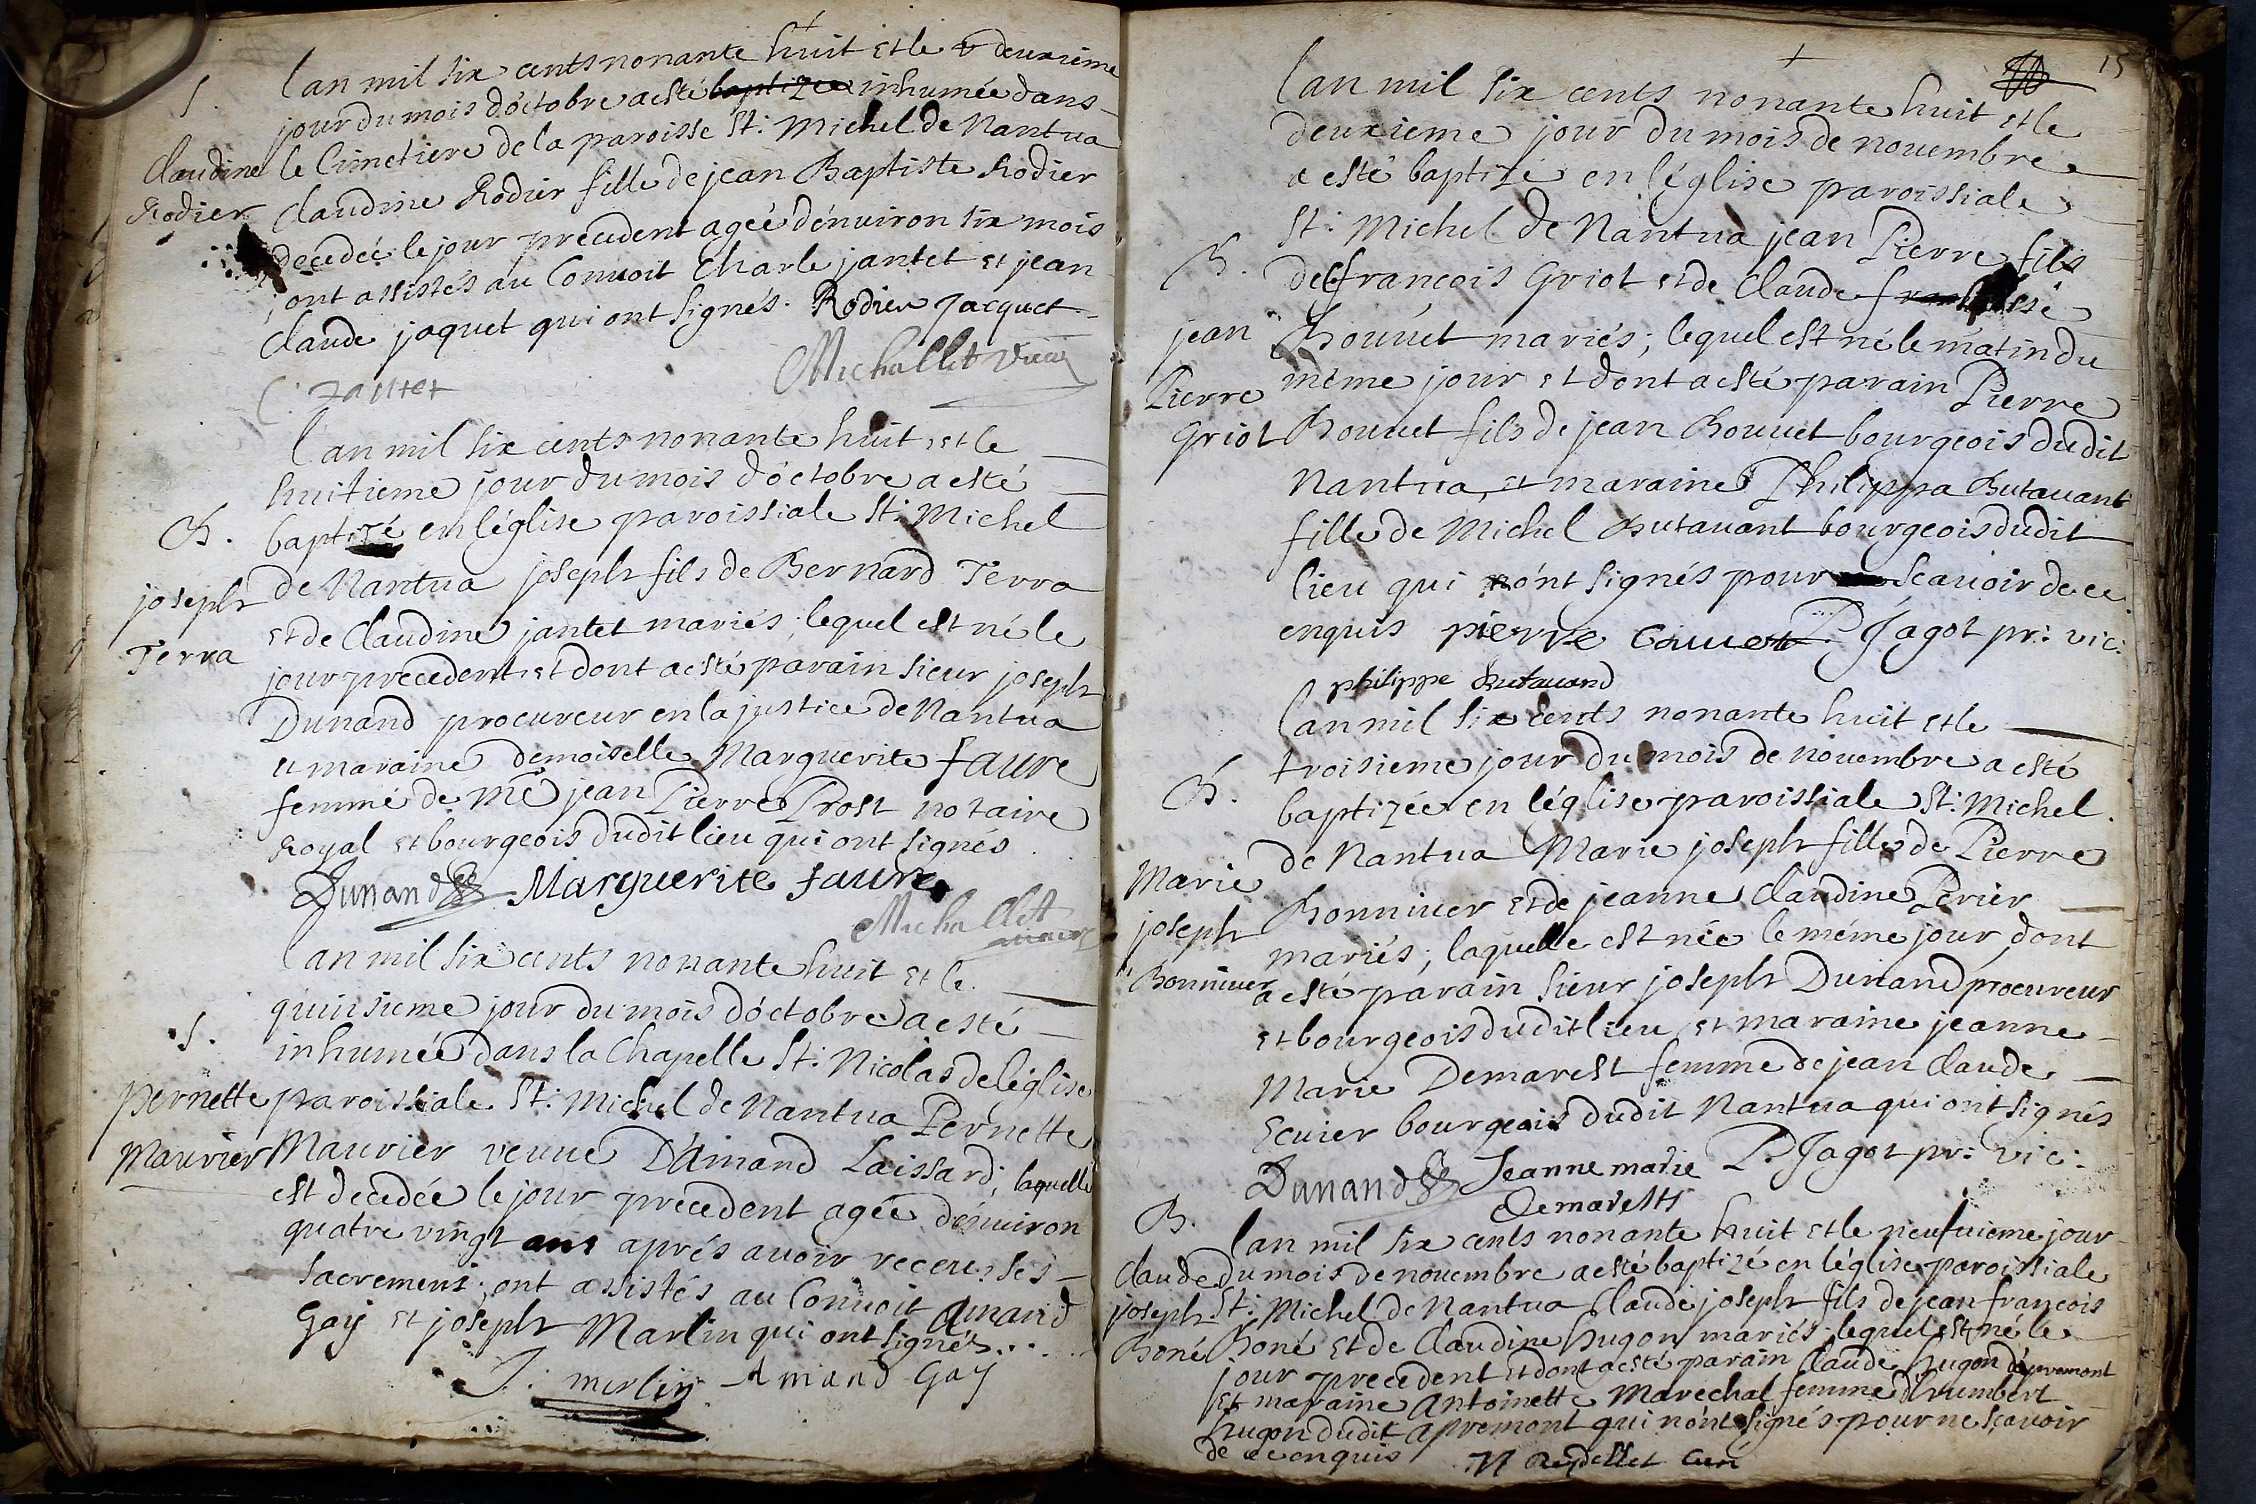 lan mil six cents nonante huit et le deuxieme
S. jour du mois d'octobre a esté baptizee inhumée dans
Claudine le Cimetiere de la paroisse St: Michel de Nantua
Rodier Claudine Rodier fille de jean Baptiste Rodier
decedée le jour precedent agée d'enuiron six mois
ont assistés au Conuoit Charle jantet et jean
Claude jaquet qui ont signés. Rodier Jacquet
Michallet vicai
C. Jantet
l'an mil six cents nonante huit et le
huitieme jour du mois d'octobre a esté
B. baptizé en l'église paroissiale St: Michel
joseph de Nantua joseph fils de Bernard Terra
Terra et de Claudine jantet mariés, lequel est né le
jour precedent et dont a esté parain sieur joseph
Dunand procureur en la justice de Nantua
et maraine demoiselle Marguerite faure
femme de Me jean Pierre Prost notaire
Royal et bourgeois dudit lieu qui ont signés
Dunand Marguerite faure
Michallet vicai
lan mil six cents nonante huit et le
quinsieme jour du mois d'octobre a esté
S. inhumée dans la Chapelle St: Nicolas de l'église
pernette paroissiale St: Michel de Nantua Pernette
Maurier Maurier veuue D'amand Laissard; laquelle
est decedée le jour precedent agée d'enuiron
quatre vingt ans aprés auoir receu ses
sacremens; ont assistés au Conuoit Amand
Gay et joseph Marlin qui ont signés...
J: merlin Amand Gay
15
lan mil six cents nonante huit et le
deuxieme jour du mois de nouembre
a esté baptizé en l'église paroissiale
St: Michel de Nantua jean Pierre fils
B. de françois Griot et de Claude
jean Bouuet mariés; lequel est né le matin du
Pierre même jour et dont a esté parain Pierre
Griot Bouuet fils de jean Bouuet bourgeois dudit
Nantua, et maraine Philippa Butauant
fille de Michel Butauant bourgeois dudit
lieu qui n'ont signés pour sçauoir de ce
enquis pierre bouuet P. Jagot pr: vic:
philippe Butauand
lan mil six cents nonante huit et le
troisieme jour du mois de nouembre a esté
B. baptizée en l'église paroissiale St: Michel
Marie de Nantua Marie joseph fille de Pierre
joseph Bonniuer et de jeanne Claudine Perier
mariés; laquelle est née le même jour, dont
Bonniuer a esté parain sieur joseph Dunand procureur
et bourgeois dudit lieu et maraine jeanne
Marie Demarest femme de jean Claude
Ecuier bourgeois dudit Nantua qui ont signés
Dunand Jeanne marie P. Jagot pr: vic:
Demarest
B. lan mil six cents nonante huit et le neufuieme jour
Claude du mois de nouembre a esté baptizé en l'église paroissiale
joseph St: Michel de Nantua Claude joseph fils de jean françois
Boné Boné et de Claudine hugon mariés; lequel est né le
jour precedent et dont a esté parain Claude hugon d'apremont
et maraine Antoinette Marechal femme d'humbert
hugon dudit apremont qui n'ont signés pour ne sçauoir
de ce enquis